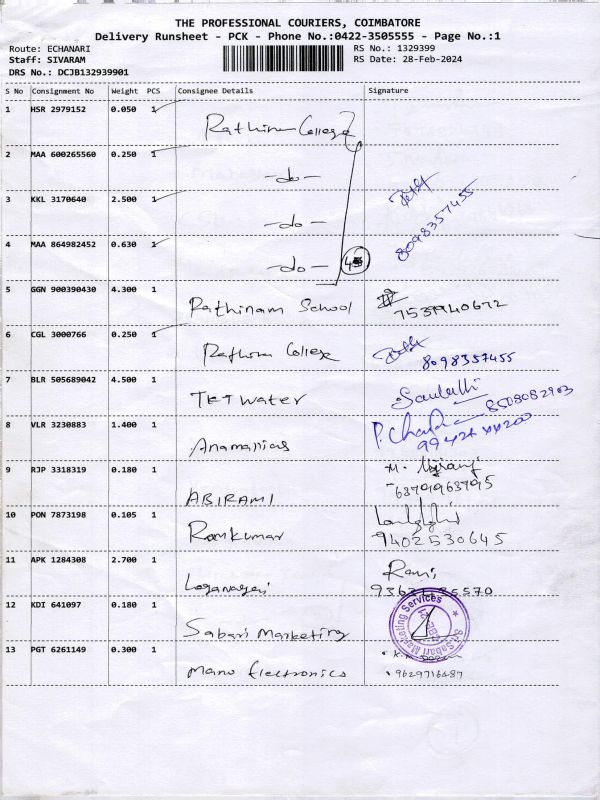 THE PROFESSIONAL COURIERS, COIMBATORE
Delivery Runsheet - PCK - Phone No.:0422-3505555 - Page No.:1
Route: ECHANARI RS No.: 1329399
Staff: SIVARAM RS Date: 28-Feb-2024
DRS No.: DCJB132939901
S No Consignment No Weight PCS Consignee Details Signature
1 HSR 2979152 0.050 1 Rathinam College
2 MAA 600265560 0.250 1 -do-
3 KKL 3170640 2.500 1 -do- 8098357455
4 MAA 864982452 0.630 1 -do-
5 GGN 900390430 4.300 1 Rathinam School
6 CGL 3000766 0.250 1 Rathinam College 8098357455
7 BLR 505689042 4.500 1 TKT Water 8508082903
8 VLR 3230883 1.400 1
9 RJP 3318319 0.180 1 ABIRAMI 6379963795
10 PON 7873198 0.105 1 Ramkumar 9402530645
11 APK 1284308 2.700 1 Rani,
12 KDI 641097 0.180 1 Sabari Marketing Sri Sabari Marketing Services
13 PGT 6261149 0.300 1 Mano Electronics 9629716487